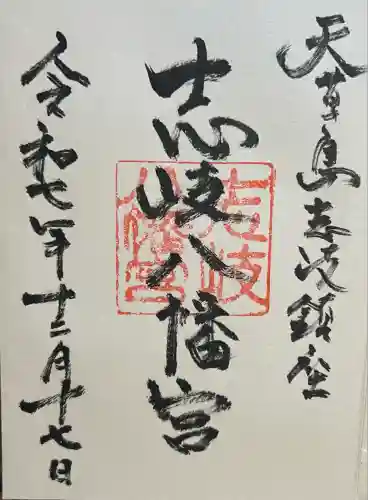 天草島志岐鎮座
志岐八幡宮
志岐八幡宮
令和七年十二月十七日